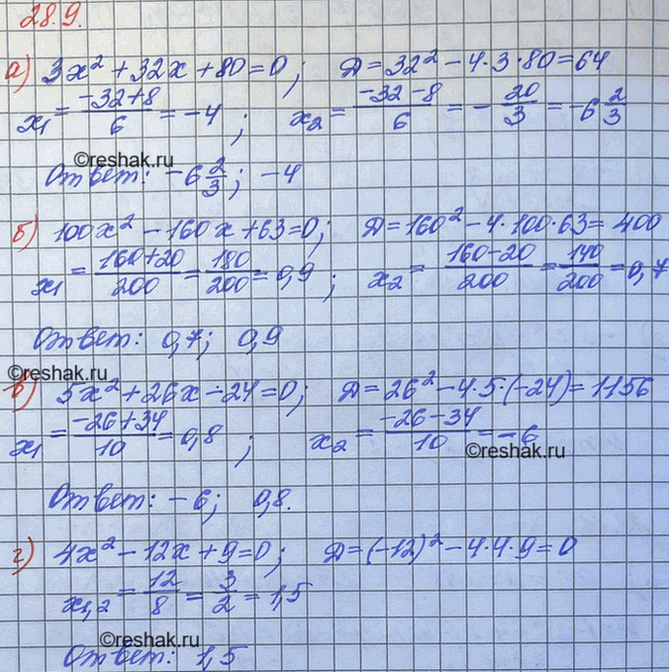 28.9.
а) 3x² + 32x + 80 = 0; Д = 32² - 4·3·80 = 64
x₁ = (-32+8)/6 = -4; x₂ = (-32-8)/6 = -20/3 = -6 2/3
©reshak.ru
Ответ: -6 2/3; -4
б) 100x² - 160x + 63 = 0; Д = 160² - 4·100·63 = 400
x₁ = (160+20)/200 = 180/200 = 0,9; x₂ = (160-20)/200 = 140/200 = 0,7
Ответ: 0,7; 0,9
©reshak.ru
в) 5x² + 26x - 24 = 0; Д = 26² - 4·5·(-24) = 1156
x₁ = (-26+34)/10 = 0,8; x₂ = (-26-34)/10 = -6
©reshak.ru
Ответ: -6; 0,8.
г) 4x² - 12x + 9 = 0; Д = (-12)² - 4·4·9 = 0
x₁,₂ = 12/8 = 3/2 = 1,5
©reshak.ru
Ответ: 1,5